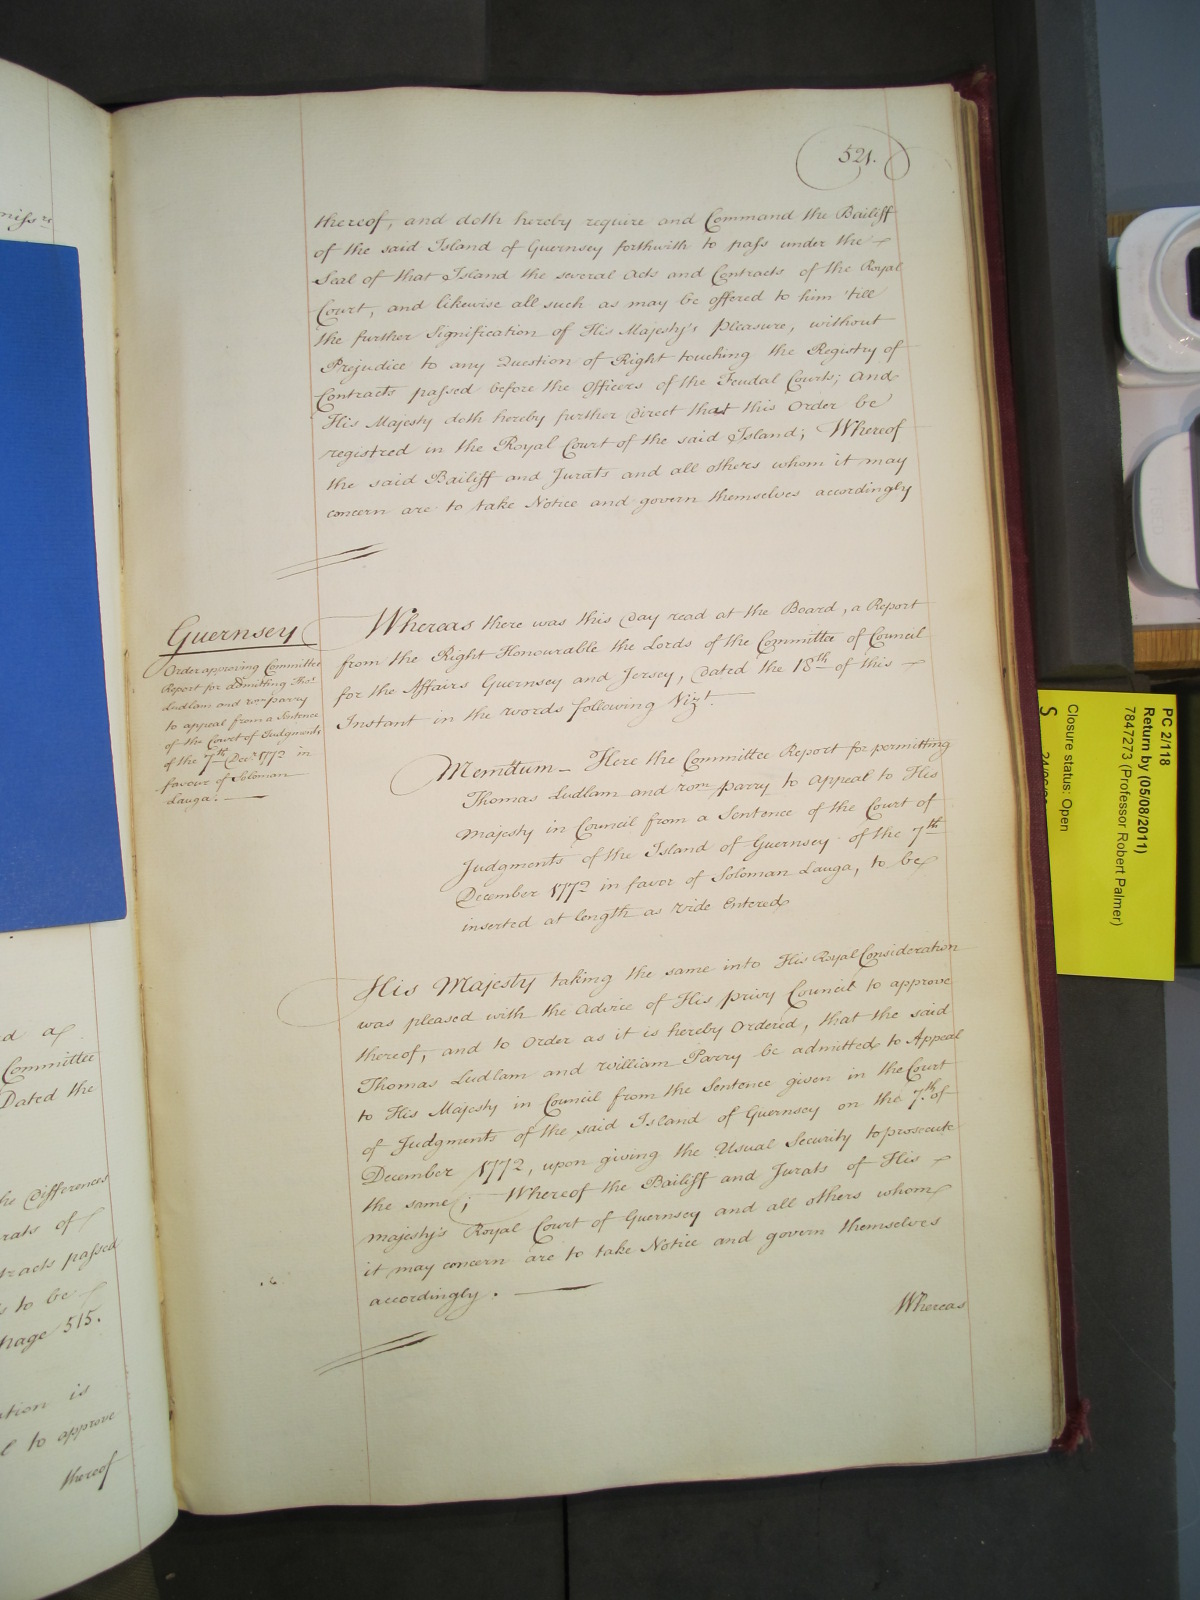 521.
thereof, and doth hereby require and Command the Bailiff
of the said Island of Guernsey forthwith to pass under the
Seal of that Island the several Acts and Contracts of the Royal
Court, and likewise all such as may be offered to him 'till
the further Signification of His Majesty's Pleasure, without
Prejudice to any Question of Right touching the Registry of
Contracts passed before the Officers of the Feudal Courts; And
His Majesty doth hereby further Direct that this Order be
registred in the Royal Court of the said Island; Whereof
the said Bailiff and Jurats and all others whom it may
concern are to take Notice and govern themselves accordingly
Guernsey
Order approving Committee
Report for admitting Thos.
Ludlam and Wm Parry
to appeal from a Sentence
of the Court of Judgments
of the 7th Decr. 1772 in
favour of Soloman
Lauga.
Whereas there was this Day read at the Board, a Report
from the Right Honourable the Lords of the Committee of Council
for the Affairs Guernsey and Jersey, Dated the 18th of this
Instant in the words following Vizt.
Memdum Here the Committee Report for permitting
Thomas Ludlam and Wm Parry to appeal to His
Majesty in Council from a Sentence of the Court of
Judgments of the Island of Guernsey of the 7th
December 1772 in favor of Soloman Lauga, to be
inserted at length as Vide Entered
His Majesty taking the same into His Royal Consideration
was pleased with the Advice of His Privy Council to approve
thereof, and to Order as it is hereby Ordered, that the said
Thomas Ludlam and William Parry be admitted to Appeal
to His Majesty in Council from the Sentence given in the Court
of Judgments of the said Island of Guernsey on the 7th of
December 1772, upon giving the Usual Security to prosecute
the same; Whereof the Bailiff and Jurats of His
Majesty's Royal Court of Guernsey and all others whom
it may concern are to take Notice and govern themselves
accordingly.
Whereas
Committee
Dated the
he Differences
rats of
tracts passed
to be
page 515.
ation is
to approve
thereof
PC 2/118
Return by (05/08/2011)
7847273 (Professor Robert Palmer)
Closure status: Open
S